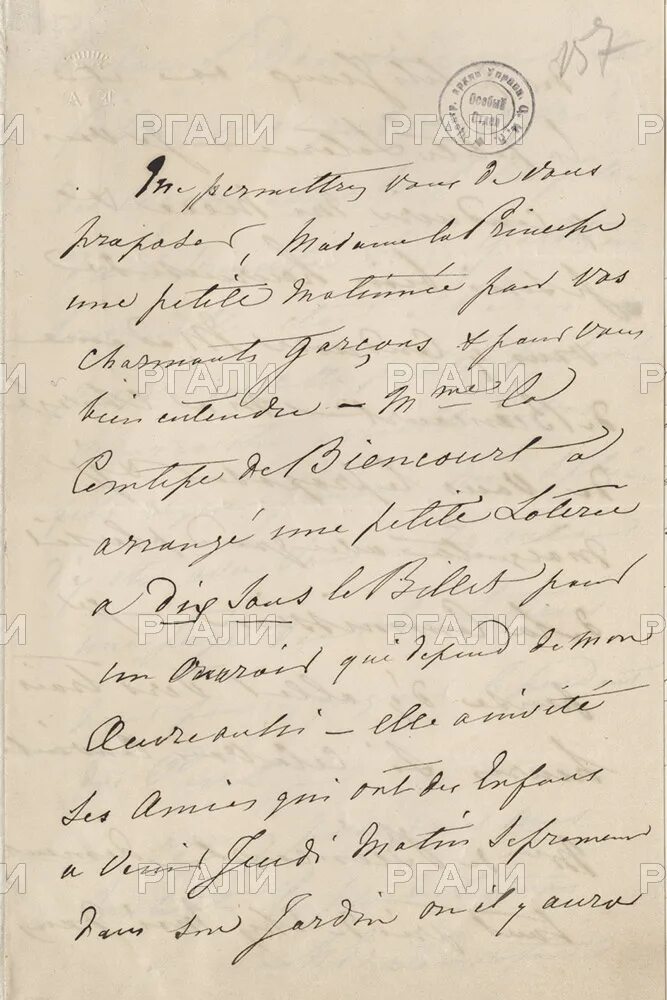 157
Центр. архив Управл.
Особый
Отдел
Me permettrez vous de vous
proposer, Madame la Princesse
une petite Matinnée pour vos
charmants Garçons & pour vous
bien entendre – Mme la
Comtesse de Biencourt a
arrangé une petite Loterie
a dix sous le Billet pour
un Ouvroir qui depend de mon
Oeuvre aussi – elle a invité
ses Amies qui ont des Enfans
a venir Jeudi Matin se promener
dans son Jardin ou il y aura
РГАЛИ РГАЛИ РГАЛИ
РГАЛИ РГАЛИ РГАЛИ
РГАЛИ РГАЛИ РГАЛИ
РГАЛИ РГАЛИ РГАЛИ